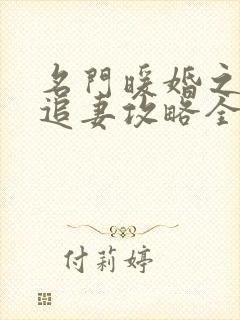 名門暖婚之
追妻攻略全
付莉婷